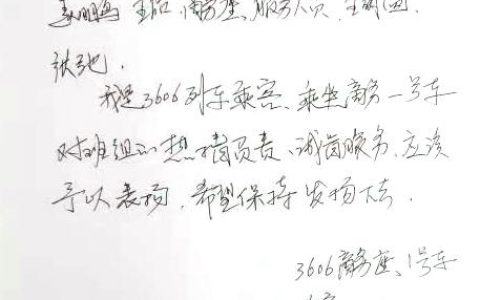 商务座、服务人员、
张弛.
我是3606列车乘客、乘坐商务一号车
对班组的热情负责、诚恳服务、应该
予以表扬，希望保持发扬下去.
3606商务座、1号车